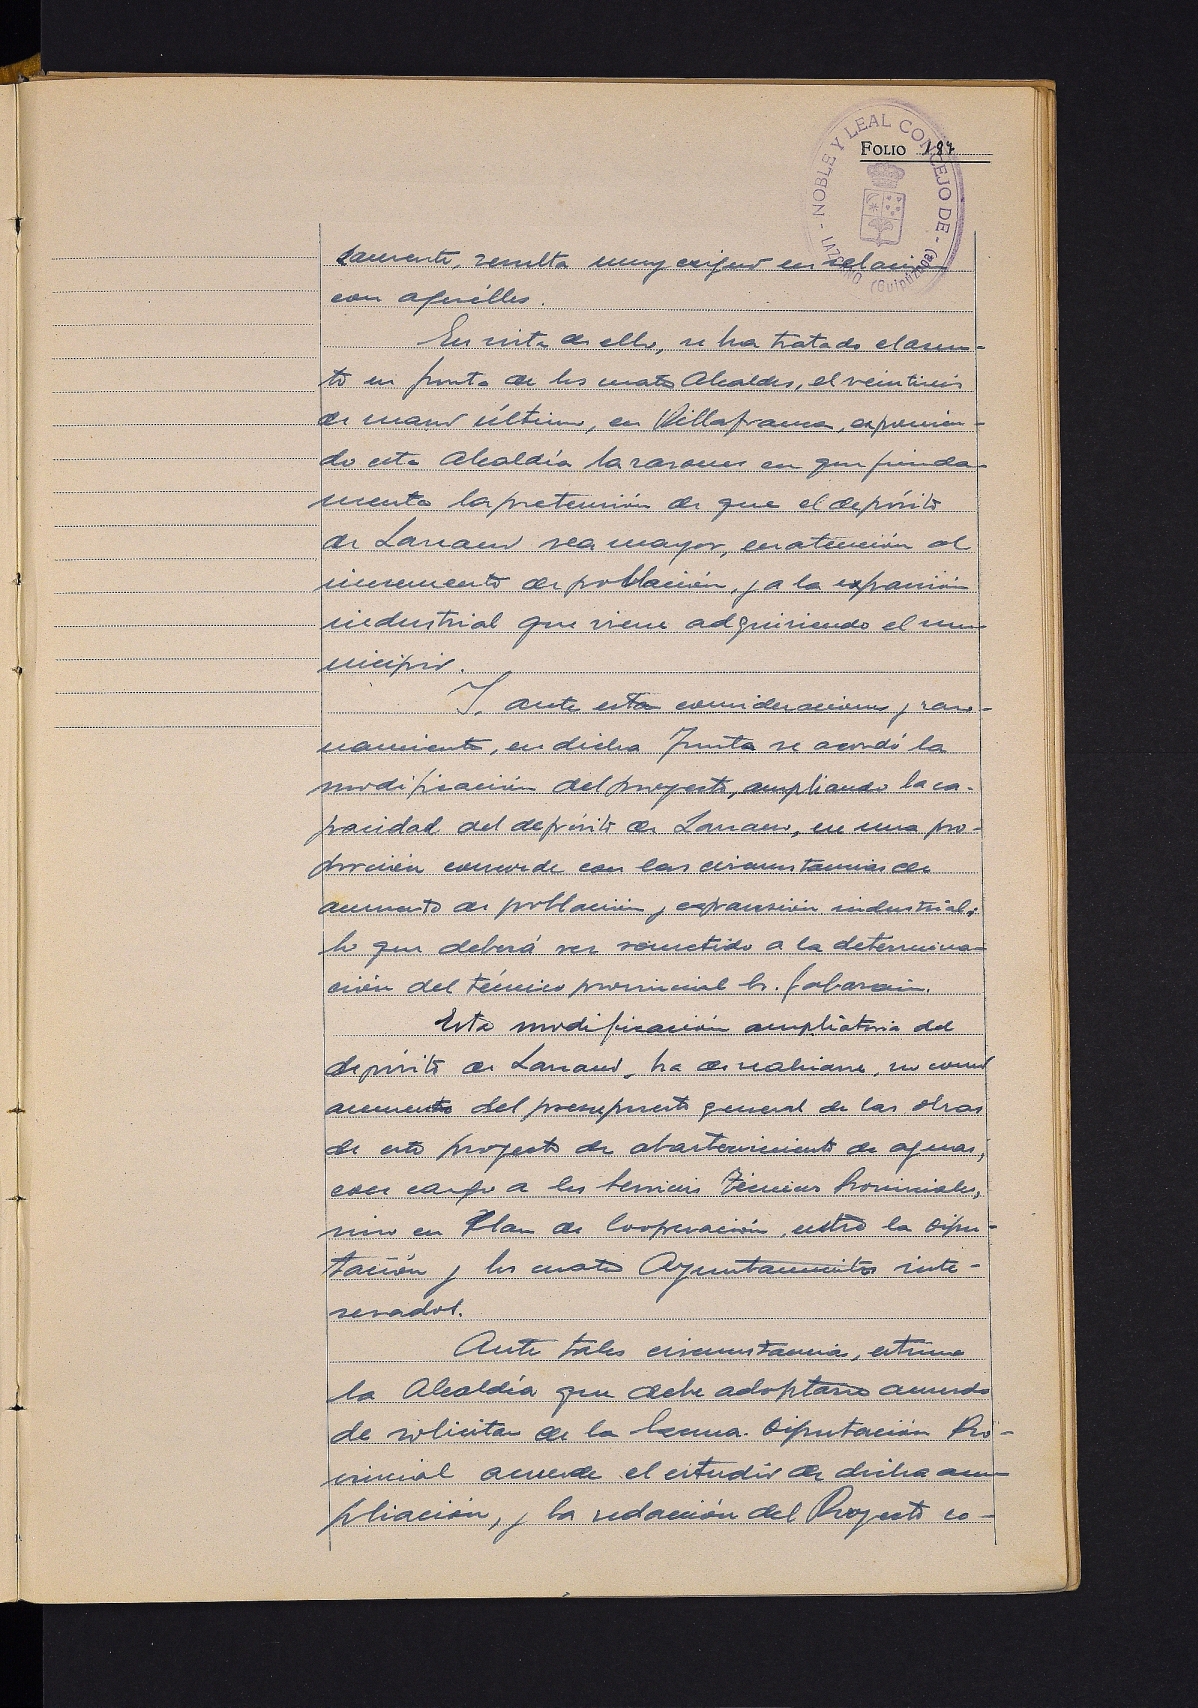 NOBLE Y LEAL CONCEJO DE
LAZCANO (Guipúzcoa)
FOLIO 187
samente, resulta muy exiguo en relación
con aquéllos.
En vista de ello, se ha tratado el asun-
to en Junta de los cuatro Alcaldes, el veintiseis
de marzo último, en Villafranca, exponien-
do esta Alcaldía las razones en que funda-
menta la pretensión de que el depósito
de Lazcano sea mayor, en atención al
incremento de población, y a la expansión
industrial que viene adquiriendo el mu-
nicipio.
Y, ante estas consideraciones y razo-
namiento, en dicha Junta se acordó la
modificación del proyecto, ampliando la ca-
pacidad del depósito de Lazcano, en una pro-
porción concorde con las circunstancias de
aumento de población y expansión industrial;
lo que deberá ser sometido a la determina-
ción del técnico provincial Sr. Gabarain.
Esta modificación ampliatoria del
depósito de Lazcano, ha de realizarse, no como
aumento del presupuesto general de las obras
de este proyecto de abastecimiento de aguas,
con cargo a los Servicios Técnicos Provinciales,
sino en Plan de Cooperación, entre la Dipu-
tación y los cuatro Ayuntamientos inte-
resados.
Ante tales circunstancias, estima
la Alcaldía que debe adoptarse acuerdo
de solicitar de la Excma. Diputación Pro-
vincial acuerde el estudio de dicha am-
pliación, y la redacción del Proyecto co-